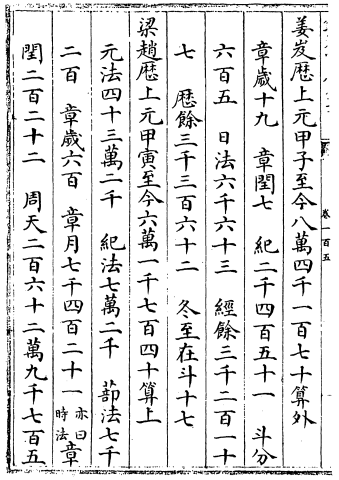 姜岌厯上元甲子至今八萬四千一百七十算外
章歲十九　章閏七　紀二千四百五十一　斗分
六百五　日法六千六十三　經餘三千二百一十
七　厯餘三千三百六十二　冬至在斗十七
梁趙厯上元甲寅至今六萬一千七百四十算上
元法四十三萬二千　紀法七萬二千　蔀法七千
二百　章歲六百　章月七千四百二十一亦曰時法章
閏二百二十二　周天二百六十二萬九千七百五
卷一百五